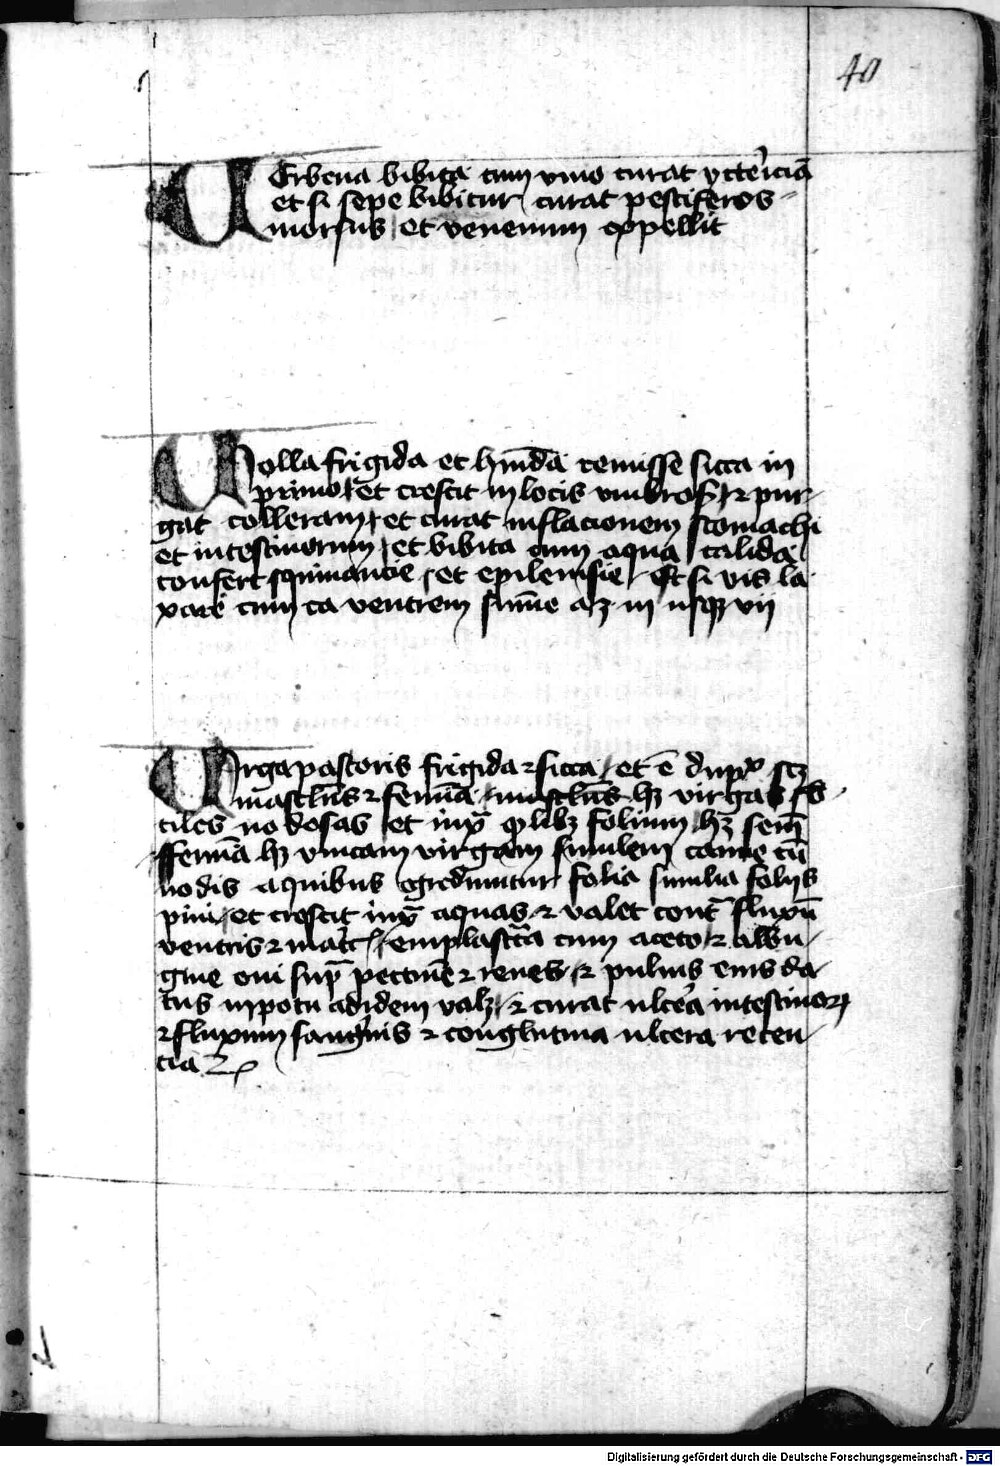 40
VErbena bibita cum vino curat yctericiā
et si sepe bibitur curat pestiferos
morsus et venenum expellit
Uolla frigida et humida remisse sicca in
primo et crescit in locis umbros̄ ⁊ pur-
gat colleram et curat inflacionem stomachi
et intestinorum et bibita cum aqua calida
confert squinancie et epilensie Et si vis la-
xare cum ea ventrem sume aʒ iii usqʒ vii
Uirga pastoris frigida ⁊ sicca et ē duplex scʒ
mascl̄us ⁊ femīa mascl̄us hʒ virgas
ciles nodosas et iuxͣ qͥlibʒ folium hʒ sem̄
ffemīa hʒ unicam virgam similem canne cū
nodis a quibus egrediuntur folia similia foliis
pini et crescit iuxͣ aquas ⁊ valet cont̄ fluxū
ventris ⁊ emplastͣta cum aceto ⁊ albu-
gine oui sup̄ pectinē ⁊ renes ⁊ puluis eius da-
tus in potu ad idem valʒ ⁊ curat ulcera intestinorꝝ
⁊ fluxum sanguinis ⁊ conglutina ulcera recen-
cia
Digitalisierung gefördert durch die Deutsche Forschungsgemeinschaft - DFG